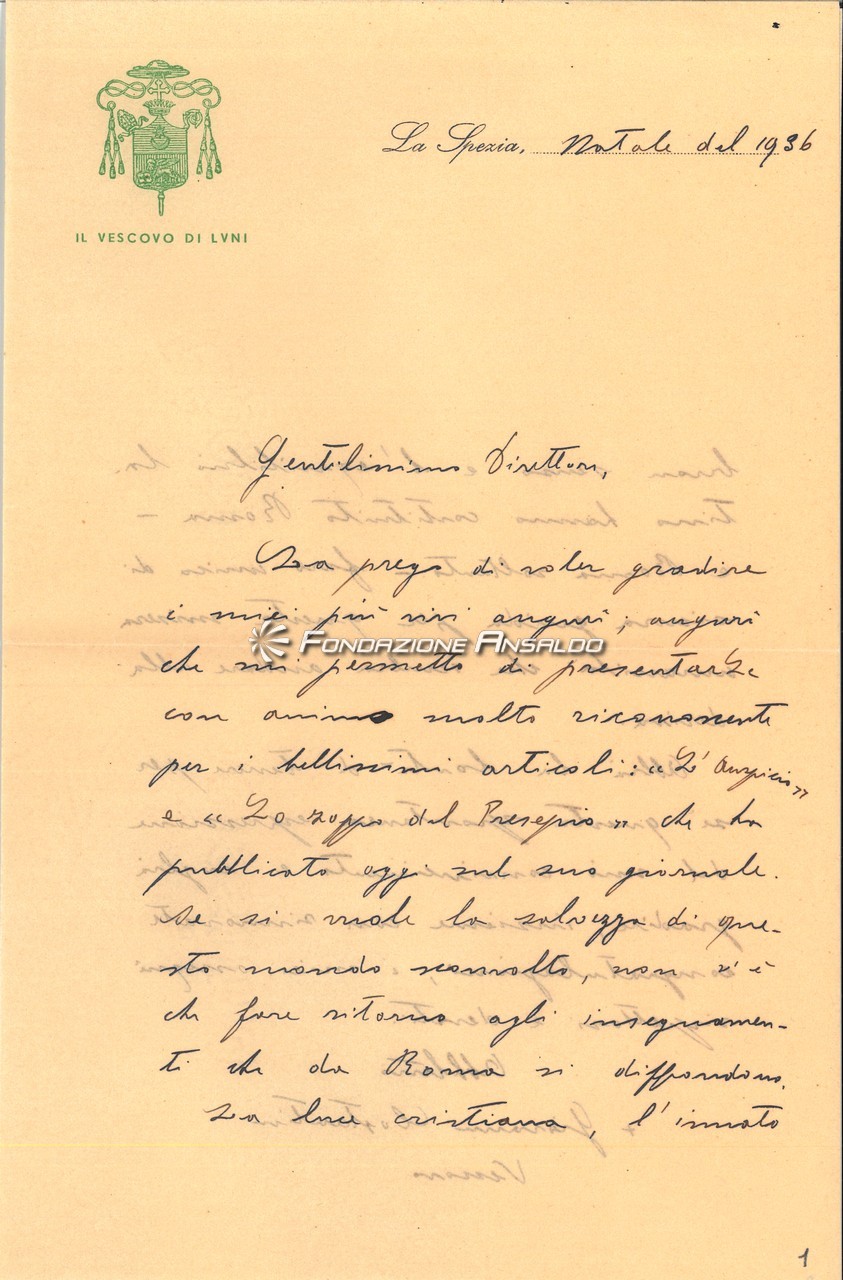 La Spezia, Natale del 1936
IL VESCOVO DI LVNI
Gentilissimo Direttore,
La prego di voler gradire
i miei più vivi auguri; auguri
FONDAZIONE ANSALDO
che mi permetto di presentarLe
con animo molto riconoscente
per i bellissimi articoli: « L'Auspicio »
e « Lo zoppo del Presepio » che ha
pubblicato oggi sul suo giornale.
Se si vuole la salvezza di que-
sto mondo sconvolto, non v'è
che fare ritorno agli insegnamen-
ti che da Roma si diffondono.
La luce cristiana, l'innato
1